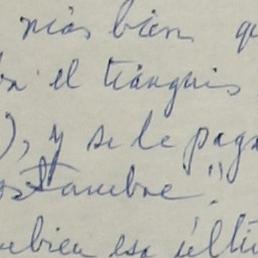 más bien qu
en el tianguis
), y se le paga
costumbre".
mbien esa últi